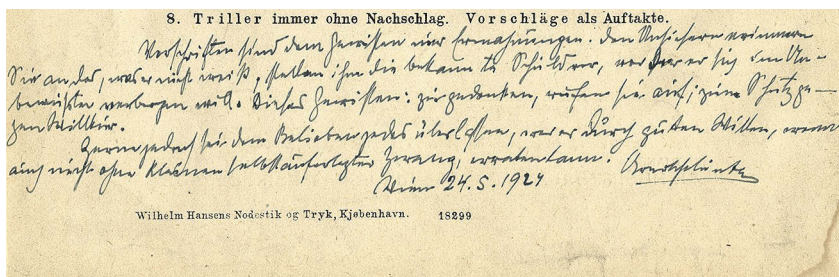 8. Triller immer ohne Nachschlag. Vorschläge als Auftakte.
Vorschriften sind dem Gewissen nur Ermahnungen. Den Unsichern erinnern
Sie an das, was er nicht weiß, stellen ihm die bekannte Schilder, vor der er sich im Un-
bewußten verbergen will. Dieses Gewissen: zu gedenken, rufen sie auf; zum Schutz ge-
gen Willkür.
Gerne jedoch sei dem Belieben jedes überlassen, was er durch guten Willen, wenn
auch nicht ohne kleinen selbstauferlegten Zwang, erraten kann.
Wien 24.5.1924
Wilhelm Hansens Nodestik og Tryk, Kjøbenhavn. 18299